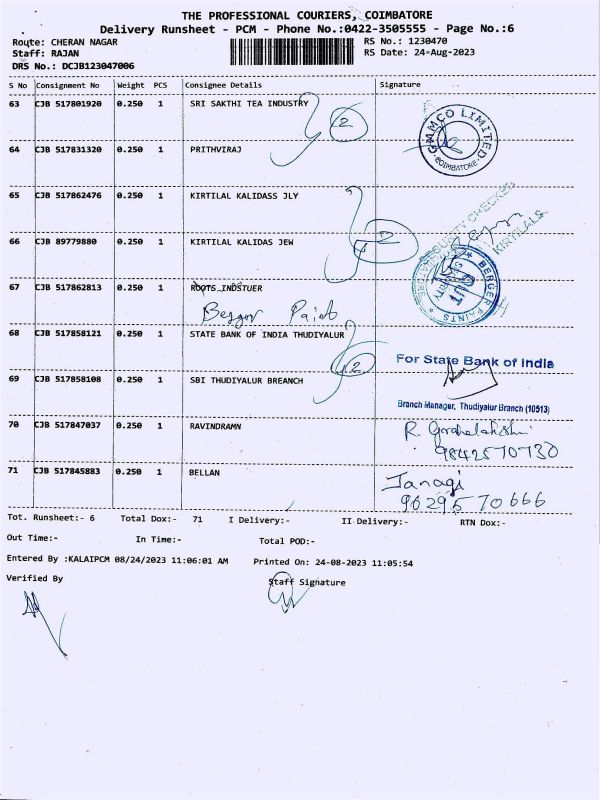 THE PROFESSIONAL COURIERS, COIMBATORE
Delivery Runsheet - PCM - Phone No.:0422-3505555 - Page No.:6
Route: CHERAN NAGAR RS No.: 1230470
Staff: RAJAN RS Date: 24-Aug-2023
DRS No.: DCJB123047006
S No Consignment No Weight PCS Consignee Details Signature
63 CJB 517801920 0.250 1 SRI SAKTHI TEA INDUSTRY
2
GMMCO LIMITED
COIMBATORE
64 CJB 517831320 0.250 1 PRITHVIRAJ
65 CJB 517862476 0.250 1 KIRTILAL KALIDASS JLY
SECURITY CHECKED
KIRTILALS
66 CJB 89779880 0.250 1 KIRTILAL KALIDAS JEW
2
67 CJB 517862813 0.250 1 ROOTS INDSTUER
BERGER PAINTS
SECURITY
OUT
Berger Paint
68 CJB 517858121 0.250 1 STATE BANK OF INDIA THUDIYALUR
2
For State Bank of India
69 CJB 517858108 0.250 1 SBI THUDIYALUR BREANCH
Branch Manager, Thudiyalur Branch (10513)
70 CJB 517847037 0.250 1 RAVINDRAMN
R.
9842570730
71 CJB 517845883 0.250 1 BELLAN
Janagi
9629570666
Tot. Runsheet:- 6 Total Dox:- 71 I Delivery:- II Delivery:- RTN Dox:-
Out Time:- In Time:- Total POD:-
Entered By :KALAIPCM 08/24/2023 11:06:01 AM Printed On: 24-08-2023 11:05:54
Verified By Staff Signature